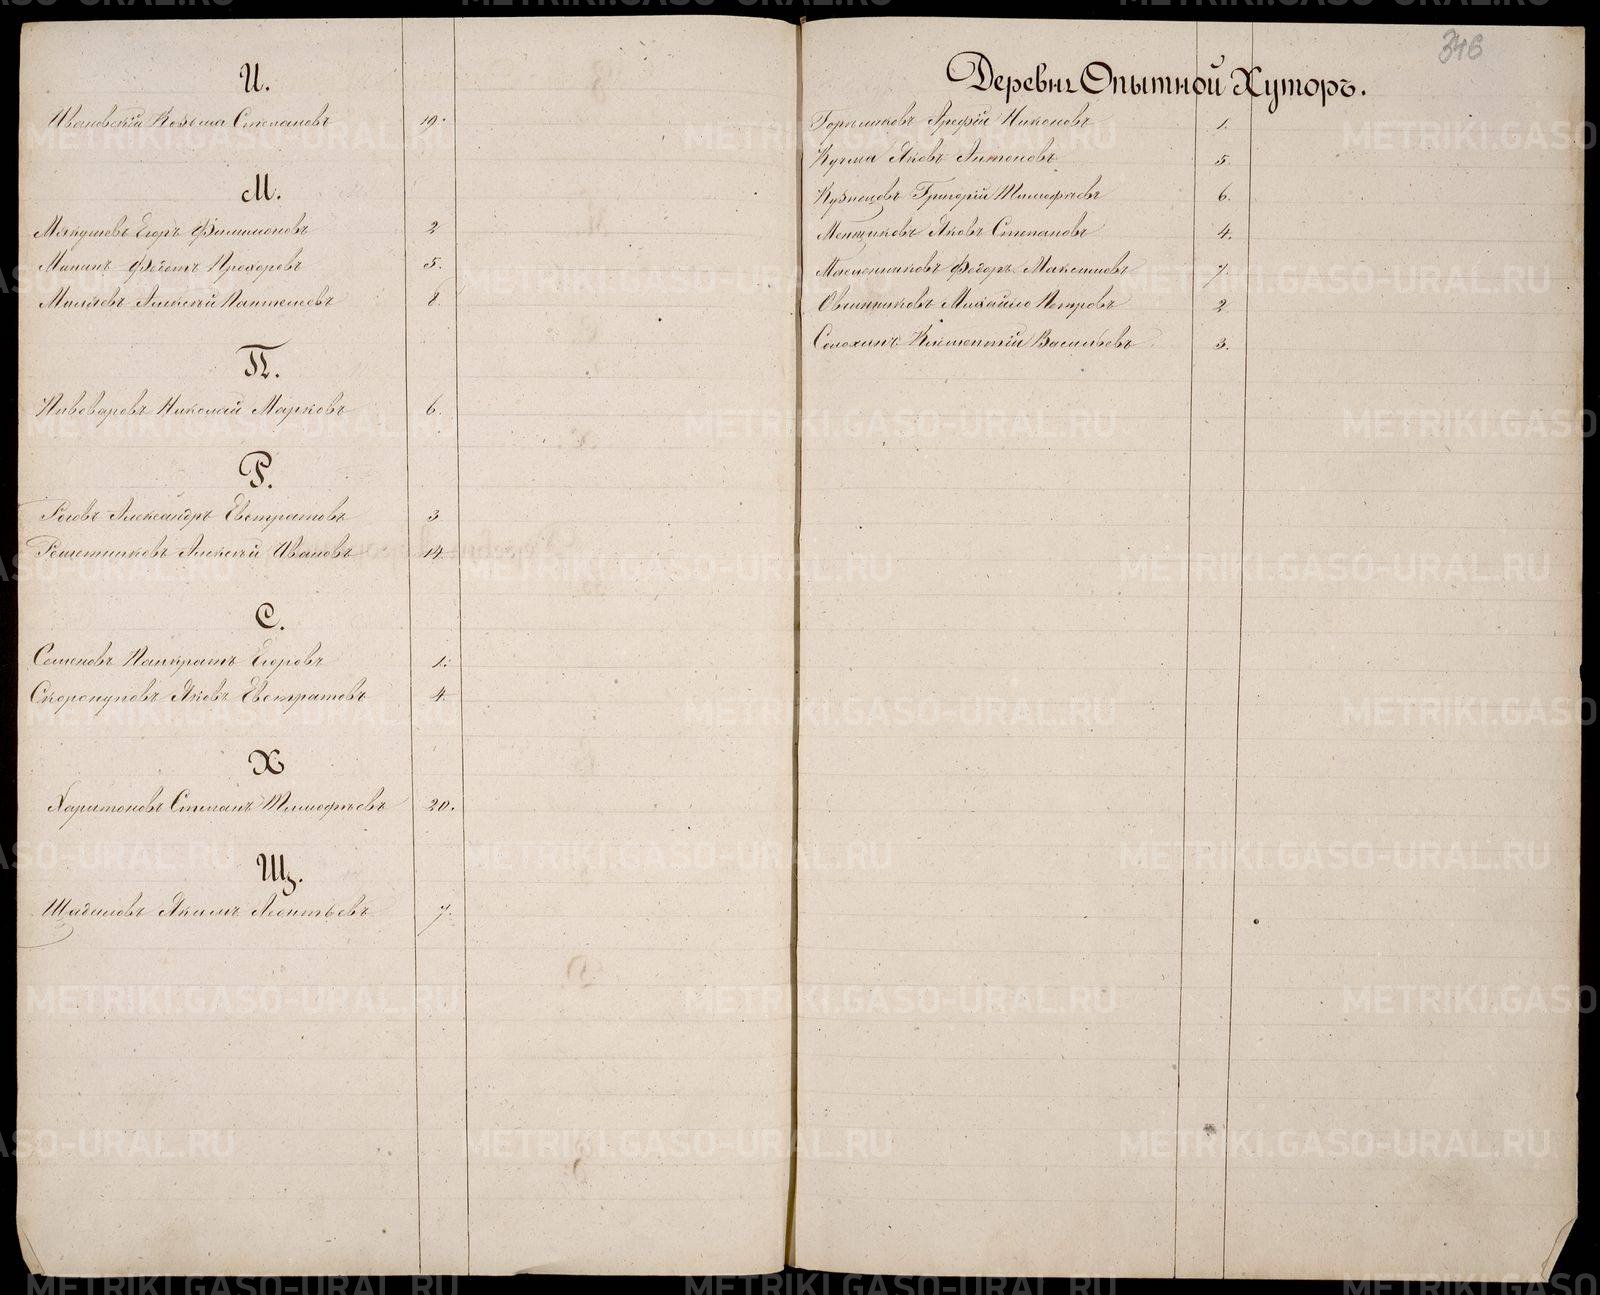 И.
Ивановскій Козьма Степановъ 19.
М.
Мякушевъ Егоръ Филимоновъ 2
Мининъ Федотъ Прохоровъ 5.
Алексѣй Пантелеевъ 8.
П.
Пивоваровъ Николай Марковъ 6.
Р.
Роговъ Александръ Евстратовъ 3
Решетниковъ Алексѣй Ивановъ 14.
С.
Семеновъ Панкратъ Егоровъ 1.
Скоропуповъ Яковъ Евстратовъ 4.
Х
Харитоновъ Степанъ Тимофѣевъ 20.
Щ.
Щадиловъ Якимъ Леонтьевъ 7.
346
Деревня Опытной Хуторъ.
Арефій Никоновъ 1.
Кучма Яковъ Антоновъ 5.
Кузнецовъ Григорій Тимофѣевъ 6.
Менщиковъ Яковъ Степановъ 4.
Масленниковъ Федоръ Максимовъ 7.
Овчинниковъ Михайло Петровъ 2
Солохинъ Климентій Васильевъ 3.
METRIKI.GASO-URAL.RU